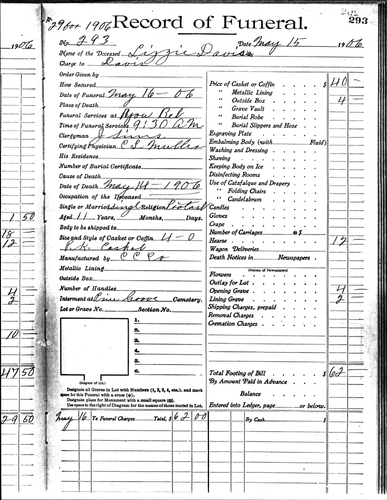 29 for 1906
Record of Funeral.
293
1906
No. 293
Date May 15 1906
Name of the Deceased Lizzie Davis
Charge to Davis
Order Given by
How Secured
Date of Funeral May 16-06
Place of Death
Funeral Services at
Time of Funeral Services 9:30 AM
Clergyman J Sims
Certifying Physician C S
His Residence
Number of Burial Certificate
Cause of Death
Date of Death May 14-1906
Occupation of the Deceased
Single or Married Single Religion
Aged 11 Years, Months, Days.
Body to be shipped to
Size and Style of Casket or Coffin 4-0
Manufactured by C C Co
Metallic Lining
Outside Box
Number of Handles
Interment at Pine Grove Cemetery.
Lot or Grave No. Section No.
1.
2.
3.
4.
5.
6.
(Diagram of Lot.)
Designate all Graves in Lot with Numbers (1, 2, 3, 4, etc.), and mark
spot for this Funeral with a cross (+).
Designate place for Monument with a small square (□).
Use space to the right of Diagram for the names of those buried in Lot.
May 16 To Funeral Charges Total, $ 62 00
Price of Casket or Coffin $ 40 -
" Metallic Lining
" Outside Box 4 -
" Grave Vault
" Burial Robe
" Burial Slippers and Hose
Engraving Plate
Embalming Body (with Fluid)
Washing and Dressing
Shaving
Keeping Body on Ice
Disinfecting Rooms
Use of Catafalque and Drapery
" Folding Chairs
" Candelabrum
Candles
Gloves
Crape
Number of Carriages @ $
Hearse 12 -
Wagon Deliveries
Death Notices in Newspapers
(Names of Newspapers)
Flowers
Outlay for Lot
Opening Grave 4 -
Lining Grave 2 -
Shipping Charges, prepaid
Removal Charges
Cremation Charges
Total Footing of Bill $ 62
By Amount Paid in Advance
Balance
Entered into Ledger, page or below.
By Cash $
1 50
18 -
12 -
4 -
2 -
10 -
47 50
29 50